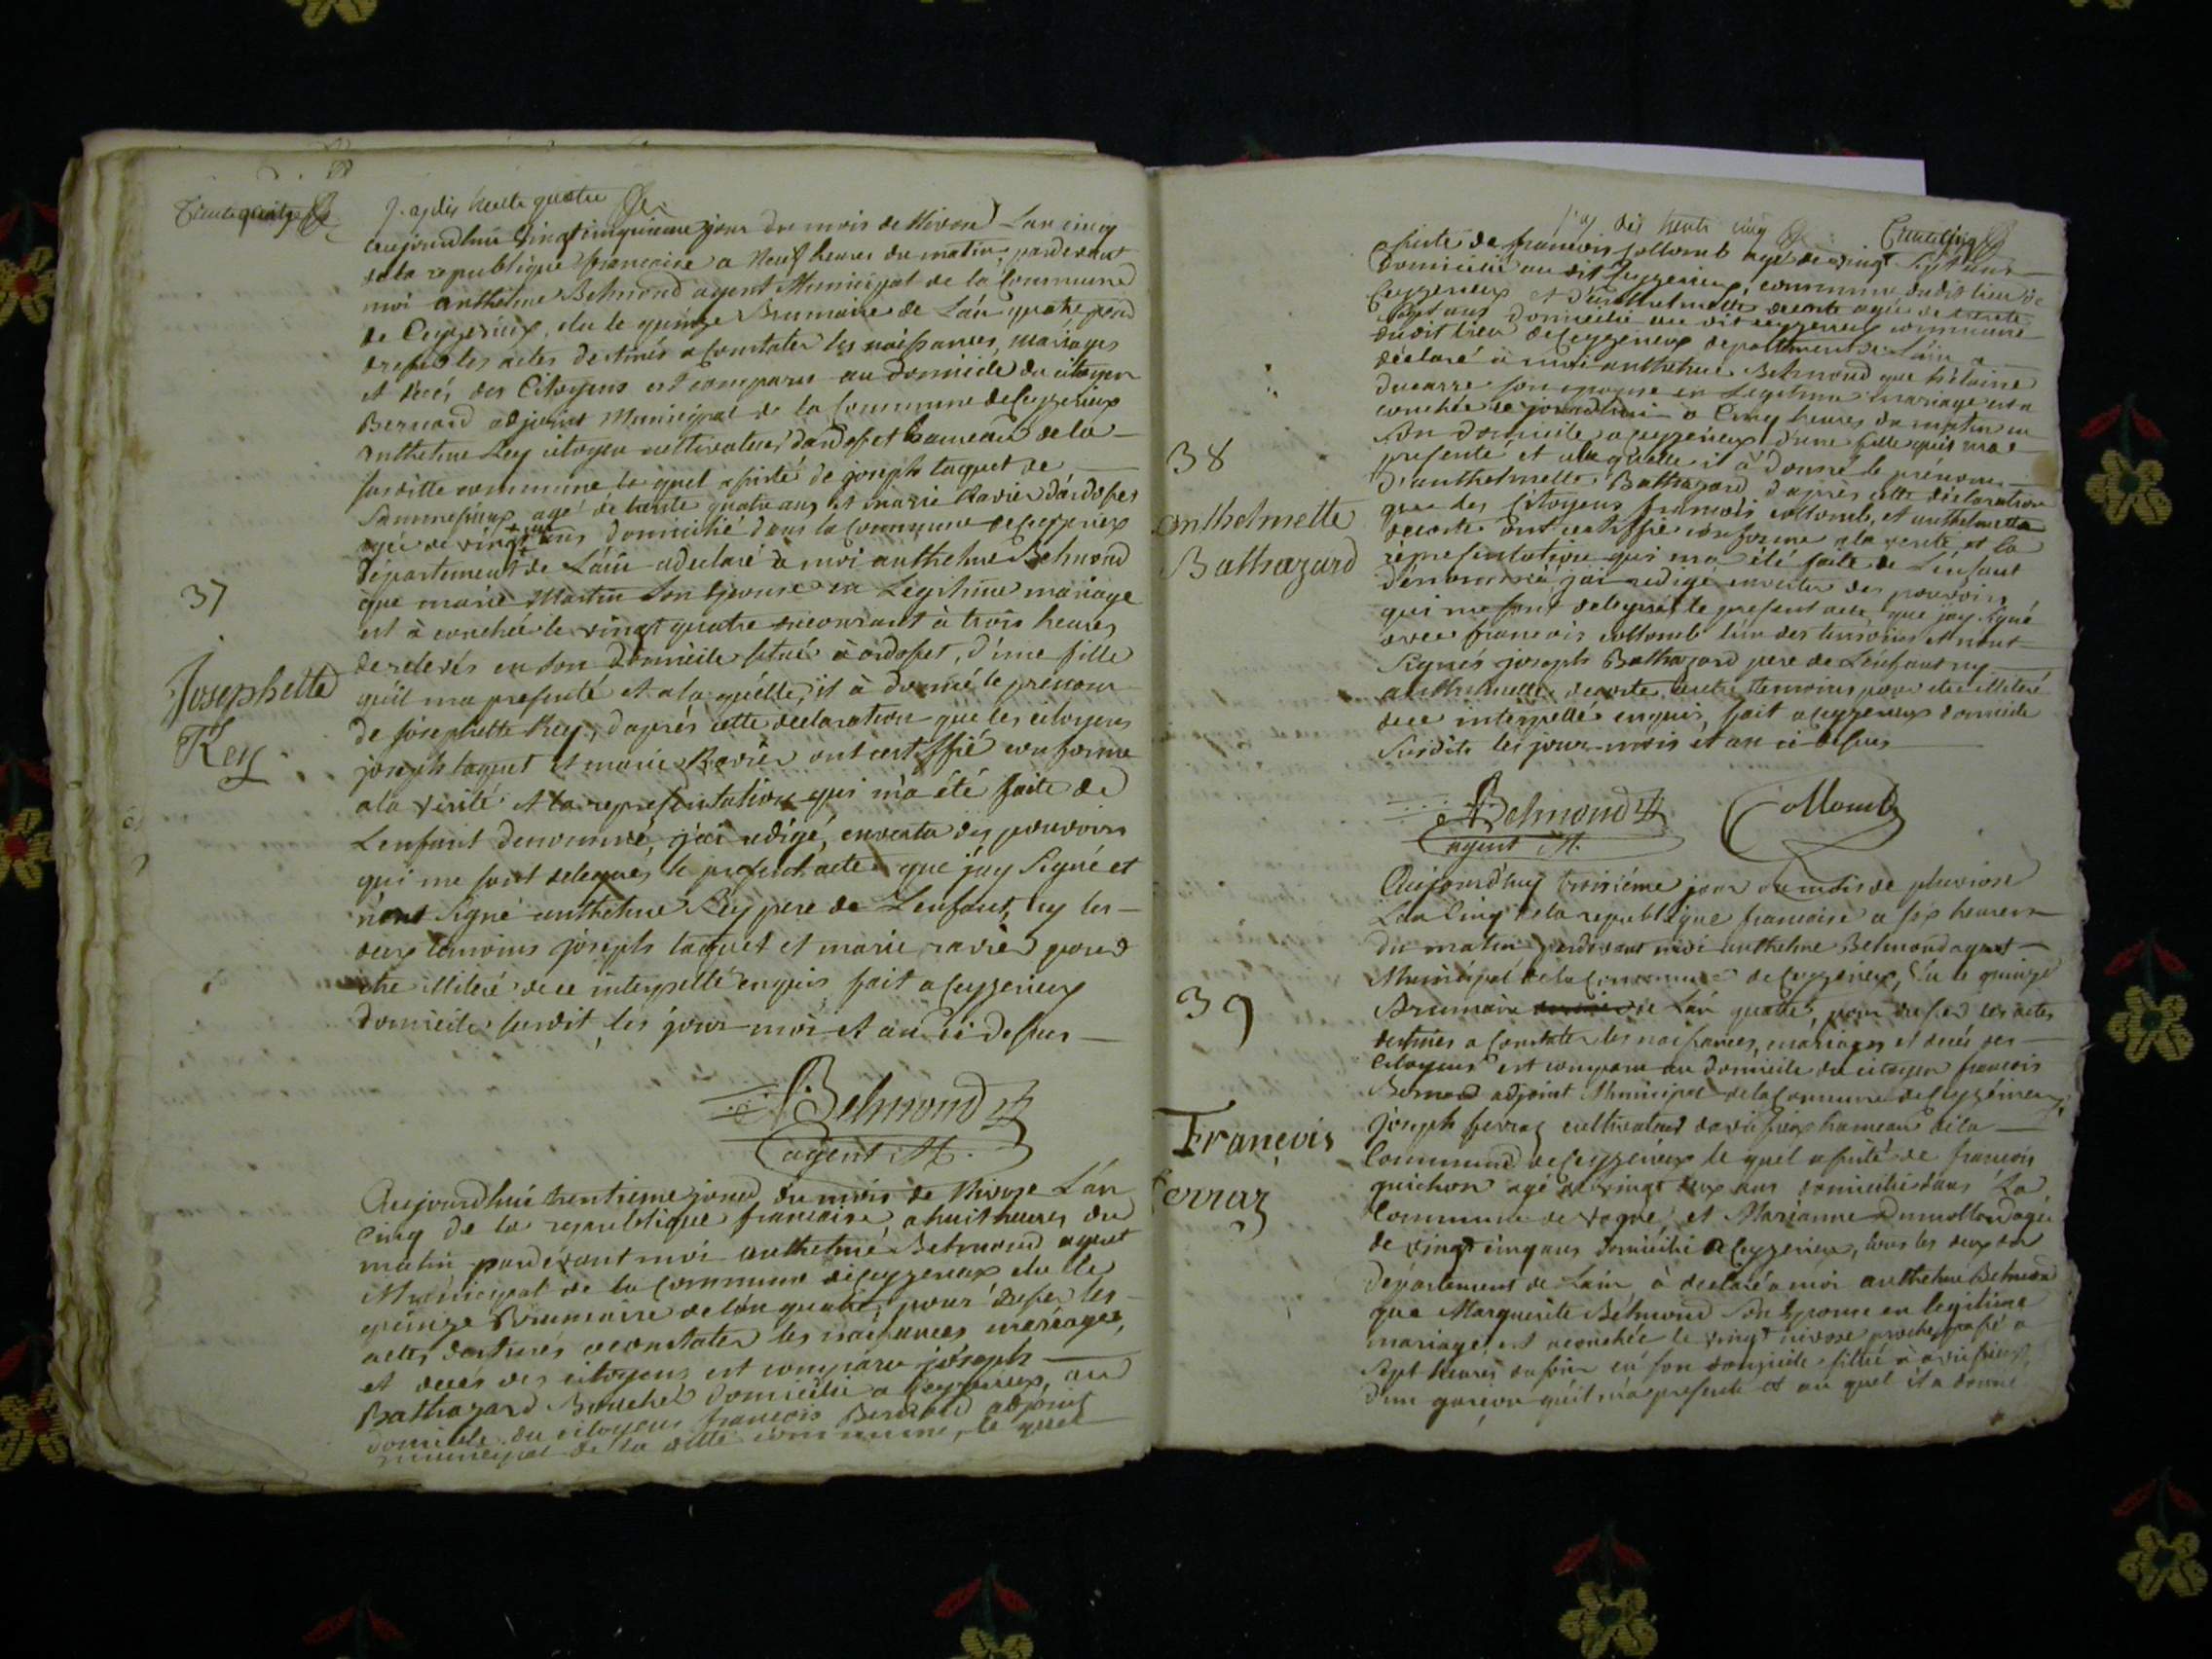 trente quatre
Page dix trente quatre
aujourdhui vingt cinquieme jour du mois de Nivose Lan cinq
de la republique francaise a Neuf heures du matin, pardevant
moi anthelme Belmond agent Municipal de la Commune
de Ceyzerieux, elu le quinze Brumaire de Lan quatre pour
dresser les actes destinés a Constater les naissances, mariages
et decés des Citoyens est comparu au Domicile du citoyen
Bernard adjoint Municipal de la Commune de Ceyzerieux
anthelme Rey citoyen cultivateur dardosset hameau de la
susditte commune le quel assisté de joseph taquet de
agé de trente quatre ans et marie Ravier dardosset
agée de vingt ans domicilié dans la Commune de Ceyzerieux
Département de Lain a declaré à moi anthelme Belmond
que marie Martin Son Epouse en Legitime mariage
est à couchée le vingt quatre du courant à trois heures
de relevés en son Domicile situé à ardosset, d'une fille
qu'il ma presenté et a la quelle, il à donné le prénom
de Josephette Rey, d'aprés cette declaration que les citoyens
joseph taquet et marie Ravier ont certiffié conforme
a la verité et la representation qui m'a été faite de
Lenfant denommé, j'ai redigé, en vertu des pouvoirs
qui me sont delegués le present acte que jay Signé et
n'ont Signé anthelme Rey pere de Lenfant, ny les
deux temoins joseph taquet et marie ravier pour
etre illiteré de ce interpellé enquis fait a Ceyzerieux
domicile susdit, les jour mois et an ci dessus
37
Josephette
Rey
Belmond
agent M.
Aujourdhui trentieme jour du mois de Nivose Lán
Cinq de la republique francaise, a huit heures du
matin pardevant moi anthelme Belmond agent
Municipal de la Commune de Ceyzerieux elu le
quinze Brumaire de lan quatre, pour dresser les
actes destinés a constater les naissances mariages,
et deces des citoyens est comparu joseph
Bathazard Bouchet domicilié a Ceyzerieux, au
domicile du citoyens francois Bernard adjoint
municipal de la ditte commune, le quel
Page dix trente cinq
Trente cinq
assisté de francois Collomb agé de vingt Sept ans
Domicilié au dit Ceyzerieux, commune dudit lieu de
Ceyzerieux et d'anthelmette decorte agée de trente
Sept ans Domicilié au dit ceyzerieux commune
dudit lieu de Ceyzerieux departement de Lain a
déclaré à moi anthelme Belmond que
ducarre son epouse en Legitime mariage est a
couchée ce jourdhui a Cinq heures du matin en
son domicile a ceyzerieux d'une fille qu'il ma
presenté et a la quelle il à donné le prénom
d'anthelmette Bathazard d'aprés cette déclaration
que les Citoyens francois collomb, et anthelmette
decorte ont certiffié conforme a la verité et la
représentation qui ma été faite de Lenfant
dénommé, jai redigé en vertu des pouvoirs
qui me sont delegués le present acte que jay Signé
avec francois collomb l'un des temoins et n'ont
Signés joseph Bathazard pere de Lenfant ny
anthelmette decorte autre temoins pour etre illiteré
de ce interpellé enquis, fait a Ceyzerieux domicile
Susdits les jour mois et an ci dessus
38
anthelmette
Bathazard
Belmond
agent M.
Collomb
Aujourd'huy troisiéme jour du mois de pluviose
Lan Cinq de la republique francaise a six heures
du matin pardevant moi anthelme Belmond agent
Municipal de la Commune de Ceyzerieux, Elu le quinze
Brumaire de Lán quatre, pour dresser les actes
destinés a Constater les naissances, mariages et decés des
Citoyens est comparu au domicile du citoyen francois
Bernard adjoint Municipal de la Commune de Ceyzérieux
joseph ferraz cultivateur davrissieux hameau de la
Commune de Ceyzérieux le quel assisté de francois
guichon agé de vingt deux ans domicilié dans La
Commune de vogne, et Marianne Dumollard agée
de vingt cinq ans domicilié a Ceyzerieux, tous les deux du
Departement de Lain à declaré a moi anthelme Belmond
que Marguerite Belmond Son Epouse en legitime
mariage, est acouchée le vingt nivose proche passé a
Sept heures du soir en son domicile sittué à avrissieux
d'un garcon qu'il m'a presenté et au quel il a donné
39
François
ferraz